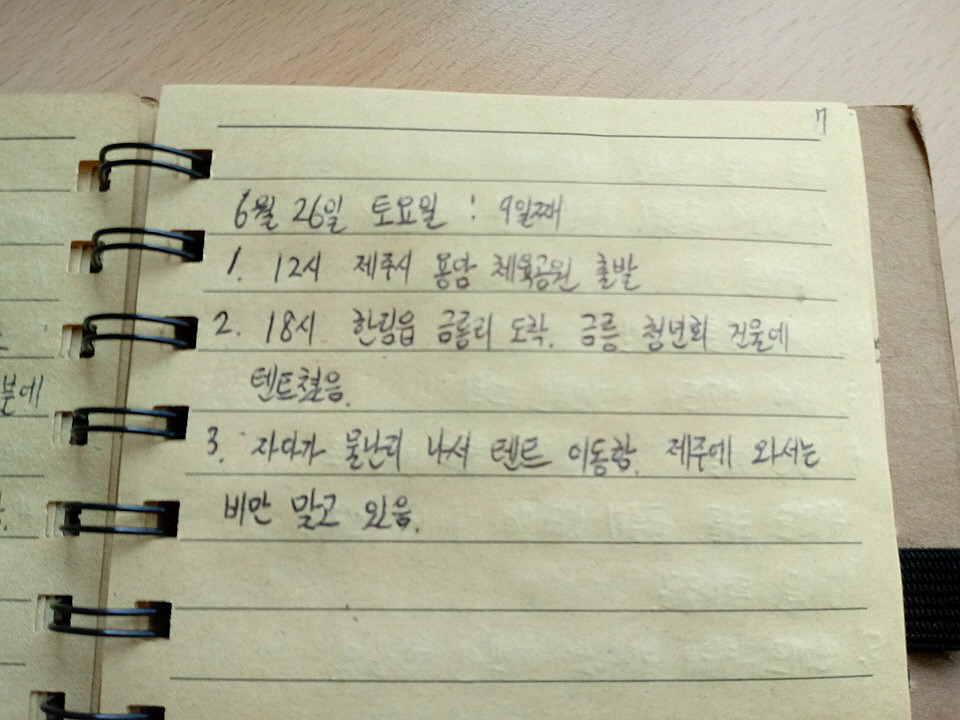 7
6월 26일 토요일 : 9일째
1. 12시 제주시 용담 체육공원 출발
2. 18시 한림읍 금릉리 도착. 금릉 청년회 건물에
텐트쳤음.
3. 자다가 물난리 나서 텐트 이동함. 제주에 와서는
비만 맞고 있음.
분에